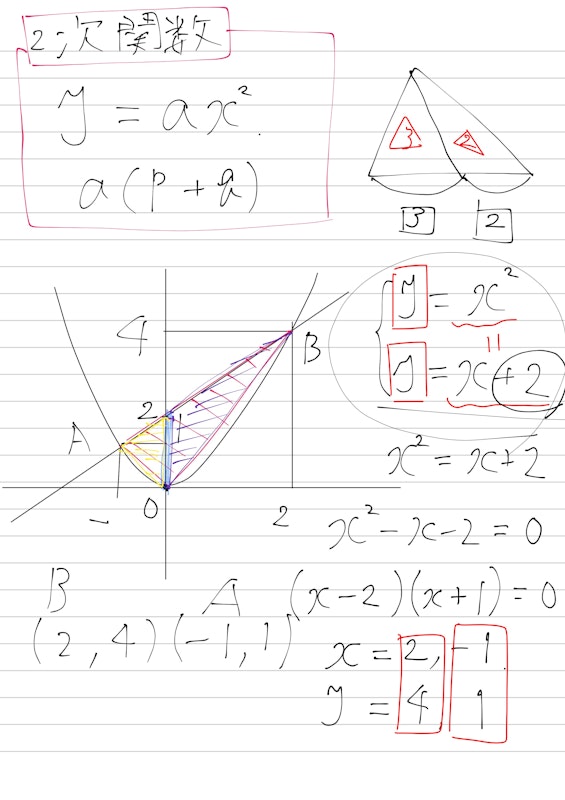 2次関数
y = ax².
a(p+q)
3 2
3 2
y = x²
=
y = x+2
4
B
2
1
A
-
0
2
x² = x+2
x²-x-2=0
(x-2)(x+1)=0
B A
(2,4)(-1,1)
x = 2, -1.
y = 4 1